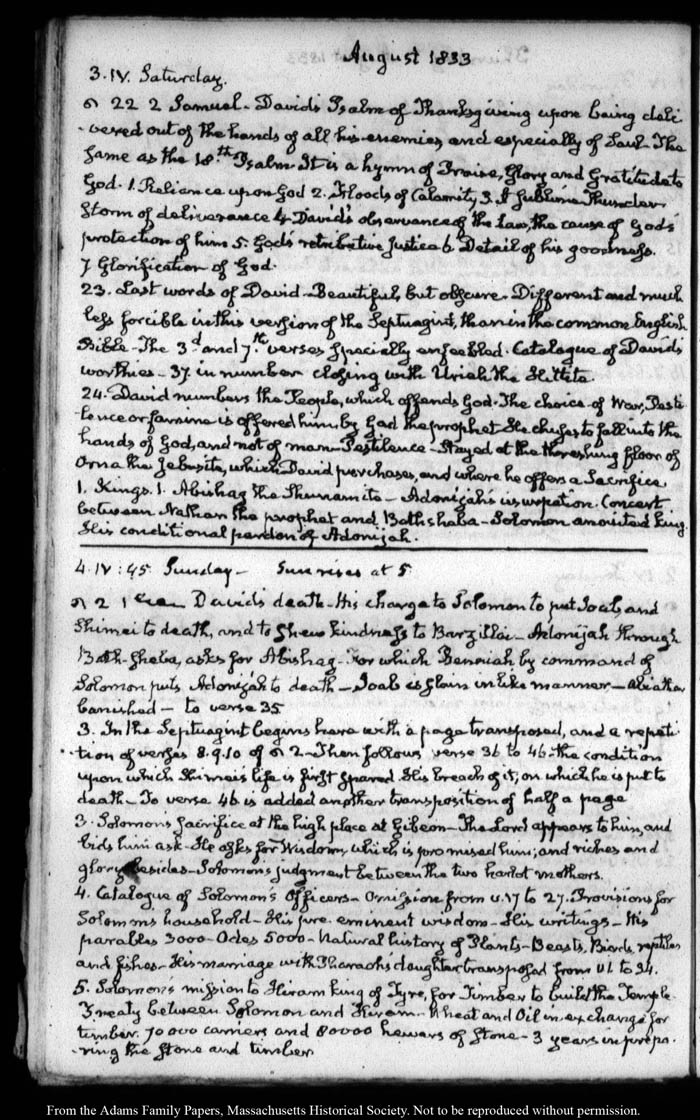 August 1833
3. IV. Saturday.
22 2 Samuel - David's Psalm of Thanksgiving upon being deli
-vered out of the hands of all his enemies, and especially of Saul - The
same as the 18.th Psalm. It is a hymn of Praise, Glory and Gratitude to
God. 1. Reliance upon God 2. Floods of Calamity, 3. A sublime Thunder
Storm of deliverance 4. David's observance of the Law, the cause of God's
protection of him 5. God's retributive Justice 6 Detail of his goodness.
7 Glorification of God.
23. Last words of David - Beautiful, but obscure - Different and much
less forcible in this version of the Septuagint, than in the common English
Bible - The 3d and 7.th verses specially enfeebled. Catalogue of David's
worthies - 37 in number closing with Uriah the Hittite.
24. David numbers the People, which offends God - The choice of War, Pesti
-lence or famine is offered him, by Gad the prophet - He chuses to fall into the
hands of God, and not of man - Pestilence - Stayed at the threshing floor of
Orna the Jebusite, which David purchases, and where he offers a Sacrifice
1. Kings. 1. Abishag the Shunamite - Adonijah's usurpation. Concert
between Nathan the prophet and Bathsheba - Solomon anointed king
His conditional pardon of Adonijah.
4. IV: 45 Sunday - Sun rises at 5
2 1 David's death - His charge to Solomon to put Joab, and
Shimei to death, and to shew kindness to Barzillai - Adonijah through
Bath-sheba, asks for Abishag - For which Benaiah by command of
Solomon puts Adonijah to death - Joab is slain in like manner - Abiathar
banished - to verse 35
3. In the Septuagint begins here with a page transposed, and a repeti
-tion of verses 8. 9. 10 of 2 - Then follows verse 36 to 46 - the condition
upon which Shimei's life is first spared. His breach of it, on which he is put to
death - To verse 46 is added another transposition of half a page
3. Solomon's sacrifice at the high place at Gibeon - The Lord appears to him, and
bids him ask - He asks for Wisdom, which is promised him; and riches and
glory besides - Solomon's judgment between the two harlot mothers.
4. Catalogue of Solomon's Officers - Omission from v. 17 to 27. Provisions for
Solomons household - His pre-eminent wisdom - His writings - His
parables 3000 - Odes 5000 - Natural history of Plants - Beasts, Birds, reptiles
and fishes - His marriage with Pharaoh's daughter transposed from
5. Solomon's mission to Hiram king of Tyre, for Timber to build the Temple
Treaty between Solomon and Hiram - Wheat and Oil in exchange for
timber. 70000 carriers and 80000 hewers of stone - 3 years in prepa-
-ring the stone and timber
From the Adams Family Papers, Massachusetts Historical Society. Not to be reproduced without permission.